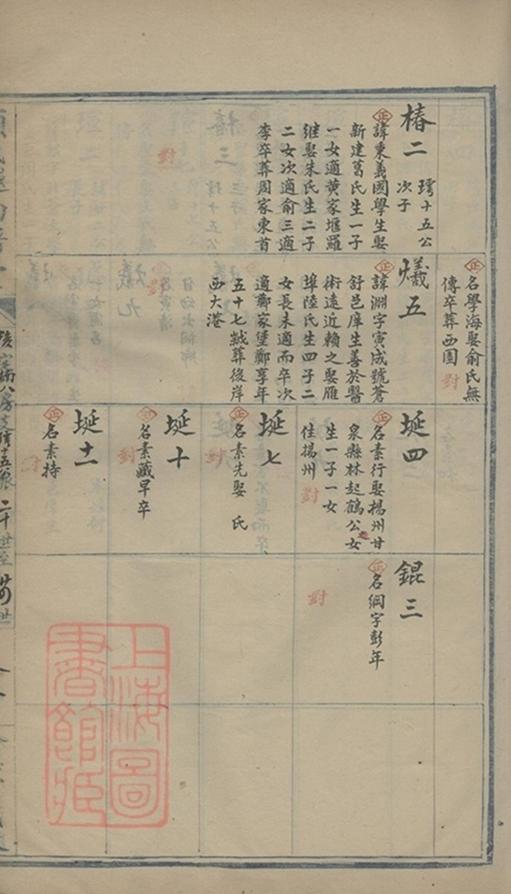 椿二
璕十五公
次子
正
諱東義國學生娶
新建葛氏生一子
一女適黄家堰羅
継娶朱氏生二子
二女次適俞三適
李卒葬周家東首
正
名學海娶俞氏無
傳卒葬西園
對
爔五
正
諱淵字寅成號蒼
舒邑庠生善於醫
術遠近賴之娶雁
埠陸氏生四子二
女長未適而卒次
適鄭家堡鄭享年
五十七歲葬後岸
西大港
埏四
正
名素行娶揚州甘
泉縣林起鶴公女
生一子一女
住揚州
對
埏七
正
名素先娶 氏
對
埏十
正
名素藏早卒
對
埏十一
正
名素持
對
錕三
正
名綱字彭年
對
上海圖
書館藏